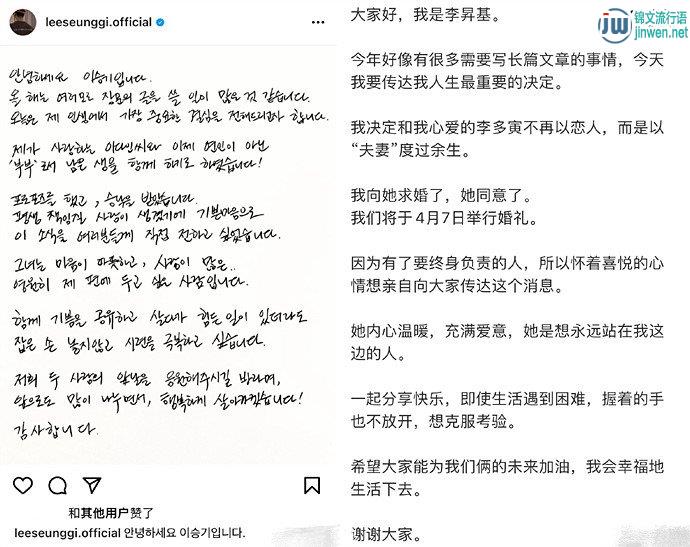 leeseunggi.official
안녕하세요 이승기입니다.
올 해는 여러모로 장문의 글을 쓸 일이 많은 것 같습니다.
오늘은 제 인생에서 가장 중요한 결심을 전해드리고자 합니다.
제가 사랑하는 이다인씨와 이제 연인이 아닌
'부부'로서 남은 생을 함께 하기로 하였습니다!
프로포즈를 했고, 승낙을 받았습니다.
평생 책임질 사람이 생겼기에 기쁜마음으로
이 소식을 여러분들께 직접 전하고 싶었습니다.
그녀는 마음이 따뜻하고, 사랑이 많은..
영원히 제 편에 두고 싶은 사람입니다.
함께 기쁨을 공유하고 살다가 힘든 일이 있더라도
잡은 손 놓지않고 시련을 극복하고 싶습니다.
저희 두 사람의 앞날을 응원해주시길 바라며,
앞으로도 많이 나누면서, 행복하게 살아가겠습니다!
감사합니다.
和其他用户赞了
leeseunggi.official 안녕하세요 이승기입니다.
锦文流行语
jinwen.net
大家好，我是李昇基。
今年好像有很多需要写长篇文章的事情，今天
我要传达我人生最重要的决定。
我决定和我心爱的李多寅不再以恋人，而是以
“夫妻”度过余生。
我向她求婚了，她同意了。
我们将于4月7日举行婚礼。
因为有了要终身负责的人，所以怀着喜悦的心
情想亲自向大家传达这个消息。
她内心温暖，充满爱意，她是想永远站在我这
边的人。
一起分享快乐，即使生活遇到困难，握着的手
也不放开，想克服考验。
希望大家能为我们俩的未来加油，我会幸福地
生活下去。
谢谢大家。